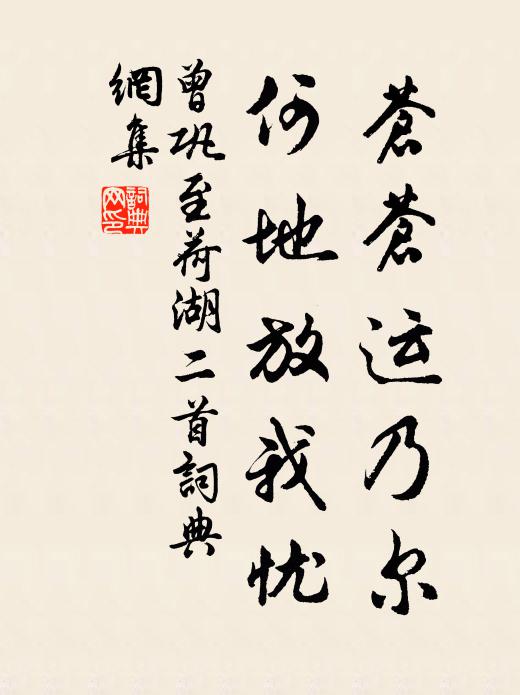 蒼蒼运乃尔
何地放我忧
曾巩至荷湖二首詞典
網集
詞典
网印